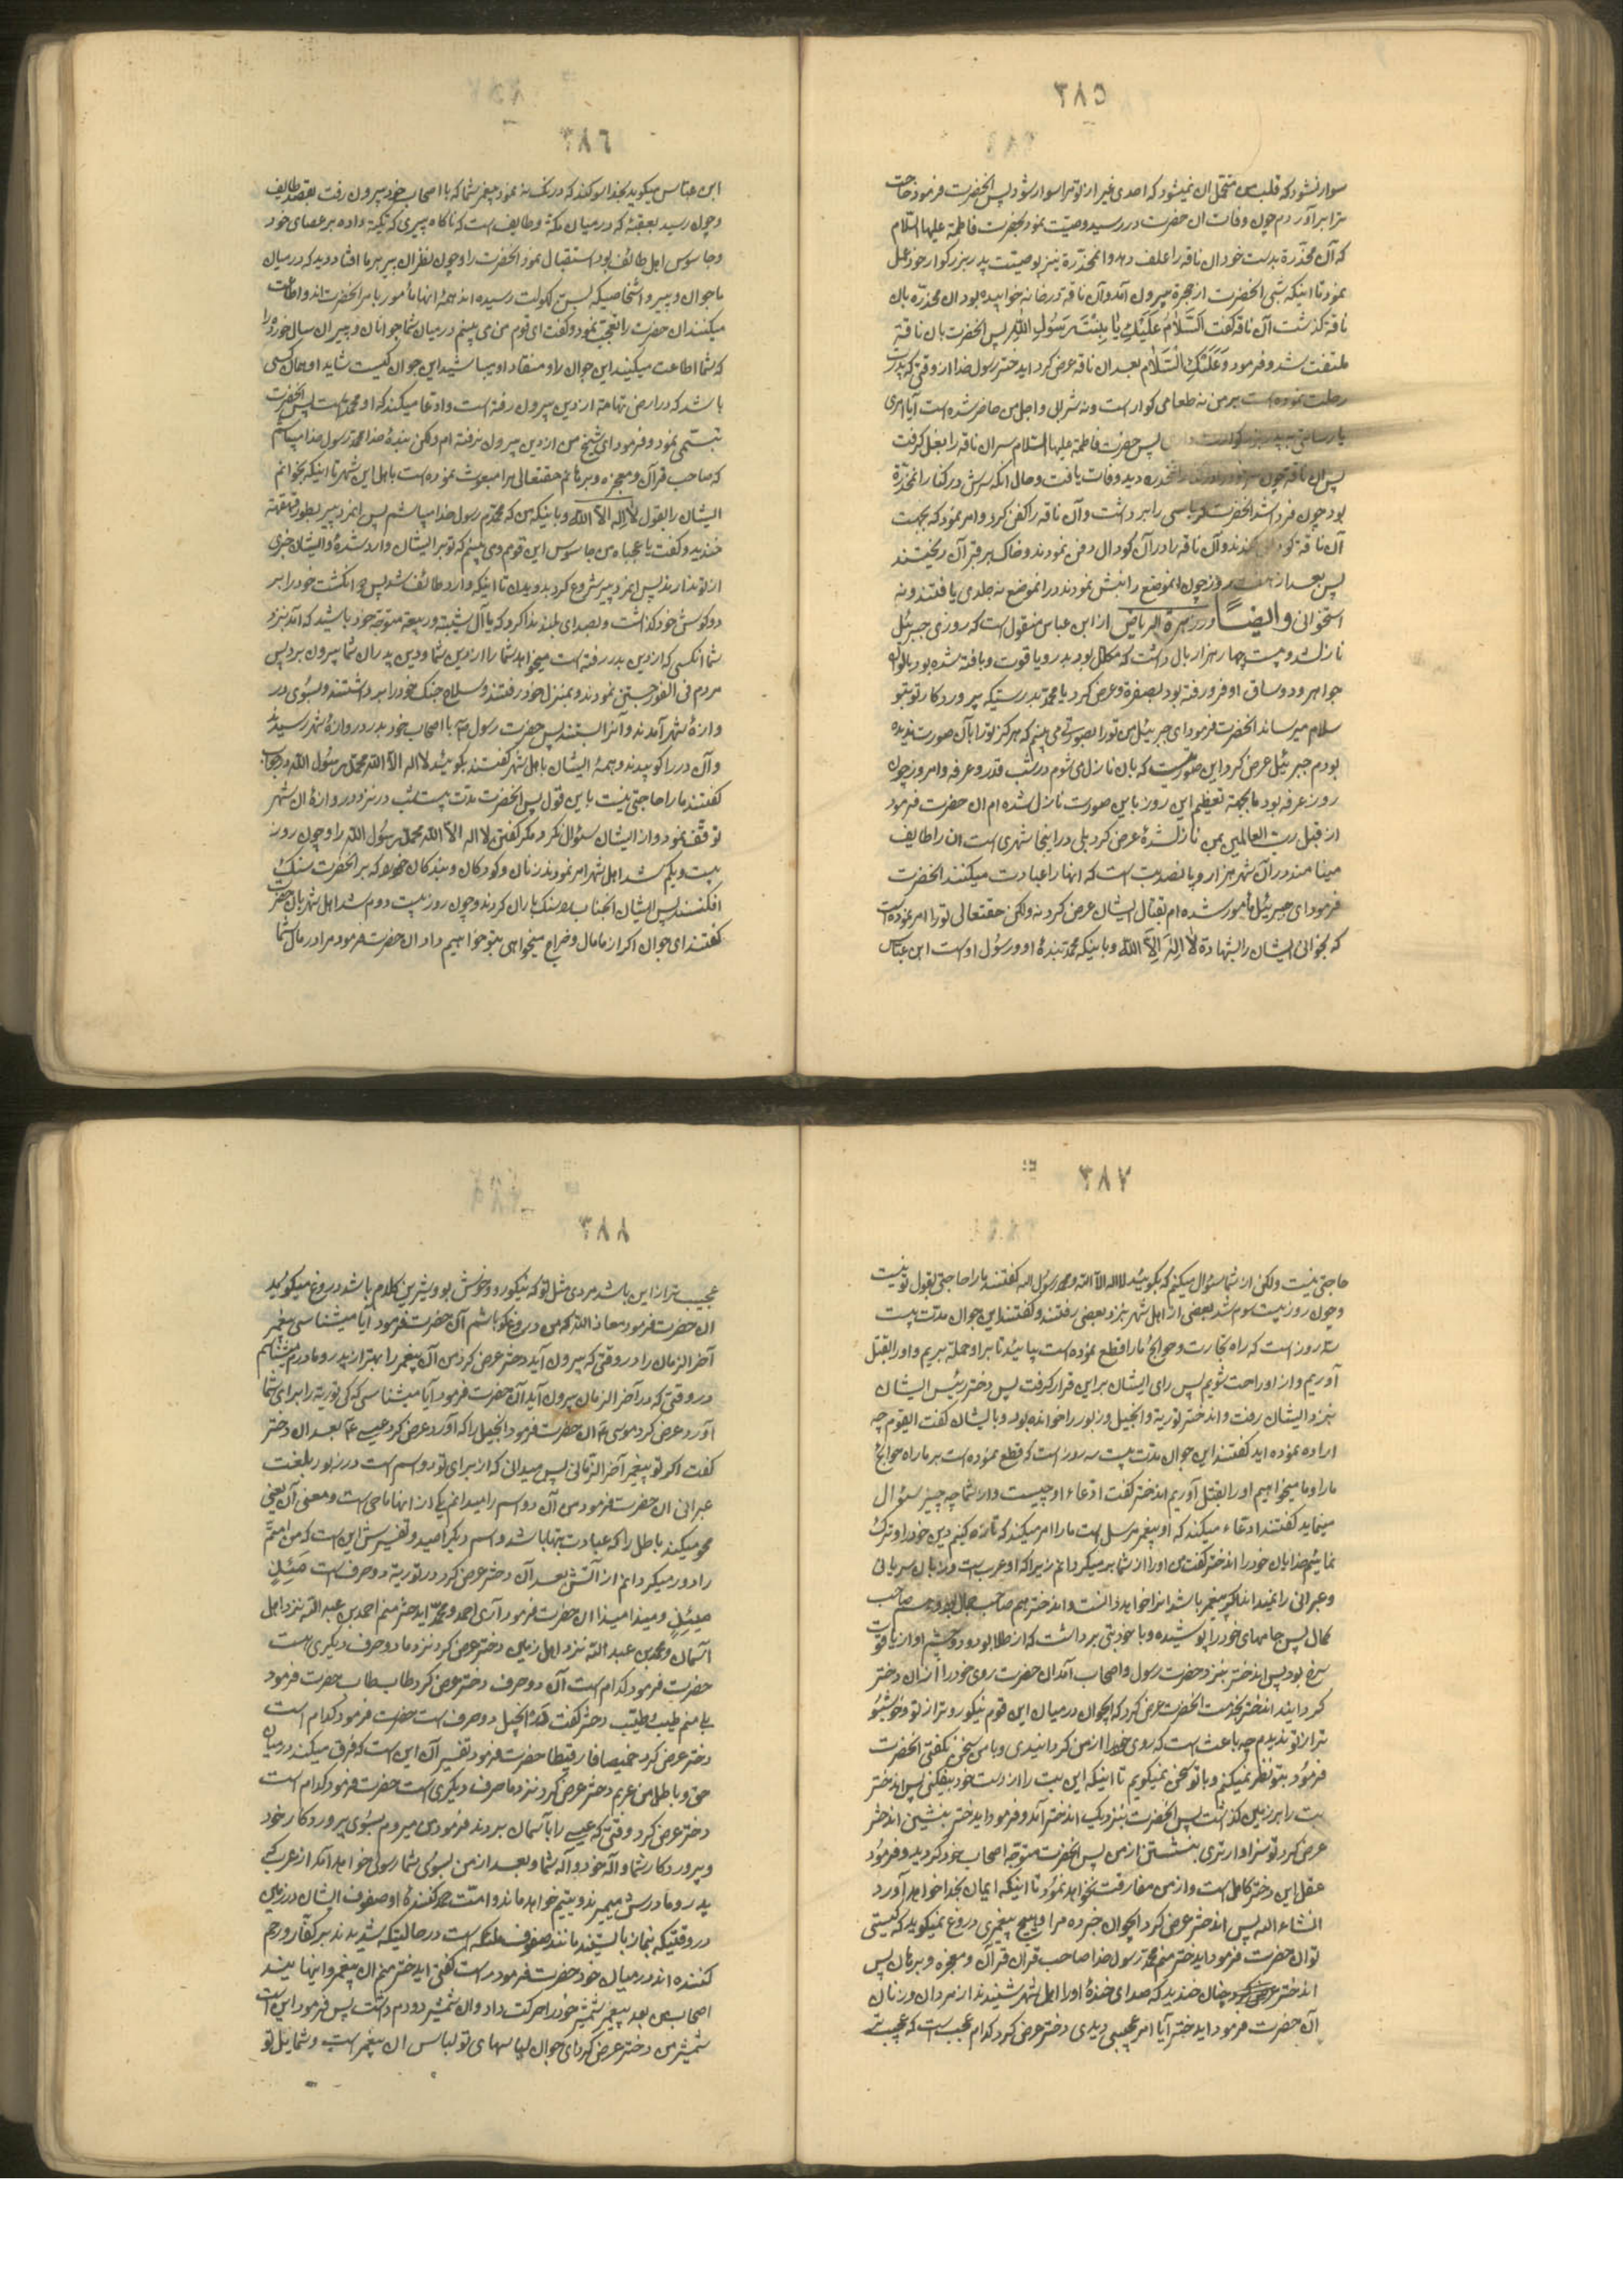 ٣٨٥
سوار نشود که قلب من متحمل ان نمیشود که احدی غیر از تو مرا سوار شود پس انحضرت فرمود حاجت
ترا برآوردم چون وفات ان حضرت در رسید وصیت نمود بحضرت فاطمة علیها السلام
که آن مخدّرة بدست خود ان ناقه را علف دهد و انمخدّرة نیز بوصیت پدر بزرگوار خود عمل
نمود تا اینکه شبی انحضرت از حجرة بیرون آمد و آن ناقه در خانه خوابیده بود ان مخدّره بان
ناقة گذشت آن ناقه گفت اَلسَّلامُ عَلَیْكِ یا بِنْتَ رَسُولِ اللهِ پس انحضرت بان ناقة
ملتفت شد و فرمود وَعَلَیْكَ السَّلام بعد ان ناقه عرض کرد ایدختر رسول خدا از وقتی که پدرت
رحلت نموده است بر من نه طعامی گوار است و نه شرابی و اجل من حاضر شده است آیا امری
یا رسالتی به پدر بزرگوارت داری پس حضرت فاطمة علیها السلام سر ان ناقه را بغل گرفت
پس ان ناقه چون خود را در کنار انمخدره دید وفات یافت و حال انکه سرش در کنار انمخدّرة
بود چون فردا شد انحضرت کرباسی را برداشت و آن ناقه را کفن کرد و امر نمود که بجهت
آن ناقة گودالی کندند و آن ناقه را در آن گودال دفن نمودند و خاک بر قبر آن ریختند
پس بعد از هفت روز چون انموضع را نبش نمودند در انموضع نه جلدی یافتند و نه
استخوانی وایضاً در زهرة الریاض از ابن عباس منقول است که روزی جبرئیل
نازل شد و بیست چهار هزار بال داشت که مکلّل بود بدر و یاقوت و بافته شده بود بانواع
جواهر و دو ساق او فرو رفته بود بصفرة و عرض کرد یا محمّد بدرستیکه پروردگار تو بتو
سلام میرساند انحضرت فرمود ای جبرئیل من تو را بصورتی می بینم که هرگز تو را بآن صورت ندیده
بودم جبرئیل عرض کرد این صورتیست که بان نازل می شوم در شب قدر و عرفه و امروز چون
روز عرفه بود ما بجهة تعظیم این روز باین صورت نازل شده ام ان حضرت فرمود
از قبل ربّ العالمین بمن نازل شدۀ عرض کرد بلی در اینجا شهری است ان را طایف
مینامند در آن شهر هزار و پانصد بت است که انها را عبادت میکنند انحضرت
فرمود ای جبرئیل مأمور شده ام بقتال ایشان عرض کرد نه ولکن حقتعالی تو را امر نموده است
که بخوانی ایشان را بشهادة لا اِلهَ اِلاَّ اللهُ و باینکه محمّد بندۀ او و رسول او است ابن عباس
٣٨٦
ابن عباس میگوید بخدا سوگند که درنگ نه نمود پیغمبر شما که با اصحاب خود بیرون رفت بقصد طایف
و چون رسید بعقبۀ که در میان مکّة و طایف است که ناگاه پیری که تکیّة داده بر عصای خود
و جاسوس اهل طائف بود استقبال نمود انحضرت را و چون نظر ان پیر بر ما افتاد دید که در میان
ما جوان و پیر و اشخاصیکه بسن کهولت رسیده اند همۀ انها مأمور بامر انحضرت اند و اطاعت
میکنند ان حضرت را تعجب نمود و گفت ای قوم من می بینم در میان شما جوانان و پیران سال خورده را
که شما اطاعت میکنید این جوان را و منقاد او میباشید این جوان کیست شاید او همان کسی
باشد که در ارض تهامه از دین بیرون رفته است و ادّعا میکند که او محمّد است پس انحضرت
تبسّمی نمود و فرمود ای شیخ من از دین بیرون نرفته ام ولکن بندۀ خدا محمّد رسول خدا میباشم
که صاحب قرآن و معجزه و برهانم حقتعالی مرا مبعوث نموده است باهل این شهر تا اینکه بخوانم
ایشان را بقول لا اِله الاّ الله و باینکه من که محمّدم رسول خدا میباشم پس انمرد پیر بطور قهقهه
خندید و گفت یا عجباه من جاسوس این قوم و می بینم که تو بر ایشان وارد شدۀ و ایشان خبری
از تو ندارند پس انمرد پیر شروع کرد بدویدن تا اینکه وارد طائف شد پس دو انگشت خود را بر
دو گوش خود گذاشت و بصدای بلند ندا کرد که یا آل شیبة و ربیعة متوجّه خود باشید که آمد بنزد
شما انکسی که از دین بدر رفته است میخواهد شما را از دین شما و دین پدران شما بیرون برد پس
مردم فی الفور جستن نمودند و بمنزل خود رفتند و سلاح جنگ خود را برداشتند و بسوی در
وازۀ شهر آمدند و آنرا بستند پس حضرت رسول ص با اصحاب خود بدر دروازۀ شهر رسیدند
و آن در را کوبیدند و همۀ ایشان باهل شهر گفتند بگوئید لا اله الاّ الله محمّد رسُول الله در جواب
گفتند ما را حاجتی نیست باین قول پس انحضرت مدّت بیست شب در نزد دروازۀ ان شهر
توقّف نمود و از ایشان سئوال نکرد مگر گفتن لا اله الاّ الله محمّد رسُول الله را و چون روز
بیست و یکم شد اهل شهر امر نمودند زنان و کودکان و بندگان خود را که بر انحضرت سنگ
افکنند پس ایشان انجناب را سنگ باران کردند و چون روز بیست دوم شد اهل شهر بان حضرت
گفتند ای جوان اگر از ما مال و خراج میخواهی بتو خواهیم داد ان حضرت فرمود مرا در مال شما
٣٨٧
حاجتی نیست ولکن از شما سئوال میکنم که بگوئید لا اله الاّ الله محمد رسول الله گفتند ما را حاجتی بقول تو نیست
و چون روز بیست سوم شد بعضی از اهل شهر بنزد بعضی رفتند و گفتند این جوان مدّت بیست
سه روز است که راه تجارت و حوائج ما را قطع نموده است بیائید تا بر او حمله بریم و او را بقتل
آوریم و از او راحت شویم پس رای ایشان بر این قرار گرفت پس دختر رئیس ایشان
بنزد ایشان رفت و اندختر توریة و انجیل و زبور را خوانده بود و بایشان گفت ایقوم چه
اراده نموده اید گفتند این جوان مدّت بیست سه روز است که قطع نموده است بر ما راه حوائج
ما را و ما میخواهیم او را بقتل آوریم اندختر گفت ادّعاء او چیست و از شما چه چیز سئوال
مینماید گفتند ادّعاء میکند که او پیغمبر مرسل است ما را امر میکند که تازه کنیم دین خود را و ترک
نمائیم خدایان خود را اندختر گفت من او را از شما بر میگردانم زیرا که او عرب است و زبان سریانی
و عبرانی را نمیداند اگر پیغمبر باشد انرا خواهد دانست و اندختر هم صاحب جمال بود و هم صاحب
کمال پس جامهای خود را پوشیده و با خود بتی برداشت که از طلا بود و دو چشم او از یاقوت
سرخ بود پس اندختر بنزد حضرت رسول و اصحاب آمد ان حضرت روی خود را از ان دختر
گردانید اندختر بخدمت انحضرت عرض کرد که ایجوان در میان این قوم نیکو روتر از تو و خوشبو
تر از تو ندیدم چه باعث است که روی خود را از من گردانیدی و با من سخن نگفتی انحضرت
فرمود بتو نظر نمیکنم و با تو سخن نمیگویم تا اینکه این بت را از دست خود بیفکنی پس اندختر
بت را بر زمین گذاشت پس انحضرت بنزدیک اندختر آمد و فرمود ایدختر بنشین اندختر
عرض کرد تو سزاوارتری بنشستن از من پس انحضرت متوجّه اصحاب خود گردید و فرمود
عقل این دختر کامل است و از من مفارقت نخواهد نمود تا اینکه ایمان بخدا خواهد آورد
انشاء الله پس اندختر عرض کرد ایجوان خبر ده مرا و هیچ پیغمبری دروغ نمیگوید که کیستی
تو ان حضرت فرمود ایدختر منم محمّد رسول خدا صاحب قران و معجزه و برهان پس
اندختر چنان خندید که صدای خندۀ او را اهل شهر شنیدند از مردان و زنان
آن حضرت فرمود ایدختر آیا امر عجیبی دیدی دختر عرض کرد کدام عجب است که عجیب تر
٣٨٨
عجیب تر از این باشد مردی مثل تو که نیکو رو و خوش بو و شیرین کلام باشد دروغ میگوئید
ان حضرت فرمود معاذ الله که من دروغگو باشم آن حضرت فرمود آیا میشناسی پیغمبر
آخر الزمان را در وقتی که بیرون آید دختر عرض کرد من آن پیغمبر را بهتر از پدر و مادرم میشناسم
در وقتی که در آخر الزمان بیرون آید آن حضرت فرمود آیا میشناسی که کی توریة را برای شما
آورد عرض کرد موسی ع ان حضرت فرمود انجیل را که آورد عرض کرد عیسی ع بعد ان دختر
گفت اگر تو پیغمبر آخر الزمانی پس میدانی که از برای تو دو اسم است در زبور بلغت
عبرانی ان حضرت فرمود من آن دو اسم را میدانم یکی از انها ماحی است و معنی آن یعنی
محو میکند باطل را که عبادت بتها باشد و اسم دیگر احید و تفسیرش این است که من امتم
را دور میگردانم از آتش بعد آن دختر عرض کرد در توریة دو حرف است
میذ میذ ان حضرت فرمود آری احمد و محمّد ایدختر منم احمد بن عبد الله نزد اهل
آسمان و محمد بن عبد الله نزد اهل زمین دختر عرض کرد نزد ما دو حرف دیگری هست
حضرت فرمود کدام است آن دو حرف دختر عرض کرد طاب طاب حضرت فرمود
بلی منم طیّب و طیّب دختر گفت در انجیل دو حرف است حضرت فرمود کدام است
دختر عرض کرد حمیصا فارقیطا حضرت فرمود تفسیر آن این است که فرق میکند در میان
حق و باطل دختر عرض کرد نزد ما حرف دیگری است حضرت فرمود کدام است
دختر عرض کرد وقتی که عیسی را بآسمان بردند فرمود من میروم بسوی پروردگار خود
و پروردگار شما و اله خود و اله شما و بعد از من بسوی شما رسولی خواهد آمد از عرب که
پدر و مادرش میمیرند و یتیم خواهد ماند و امّتش حمد کنندۀ او صفوف ایشان در زمین
در وقتیکه بنماز بایستند مانند صفوف ملائکه است در حالتیکه شدیدند بر کفّار و رحم
کننده اند در میان خود حضرت فرمود راست گفتی ایدختر منم ان پیغمبر و اینها نیند
اصحاب من بعد پیغمبر شمشیر خود را حرکت داد و ان شمشیر دو دم داشت پس فرمود این است
شمشیر من دختر عرض کرد ای جوان لباسهای تو لباس ان پیغمبر است و شمایل تو